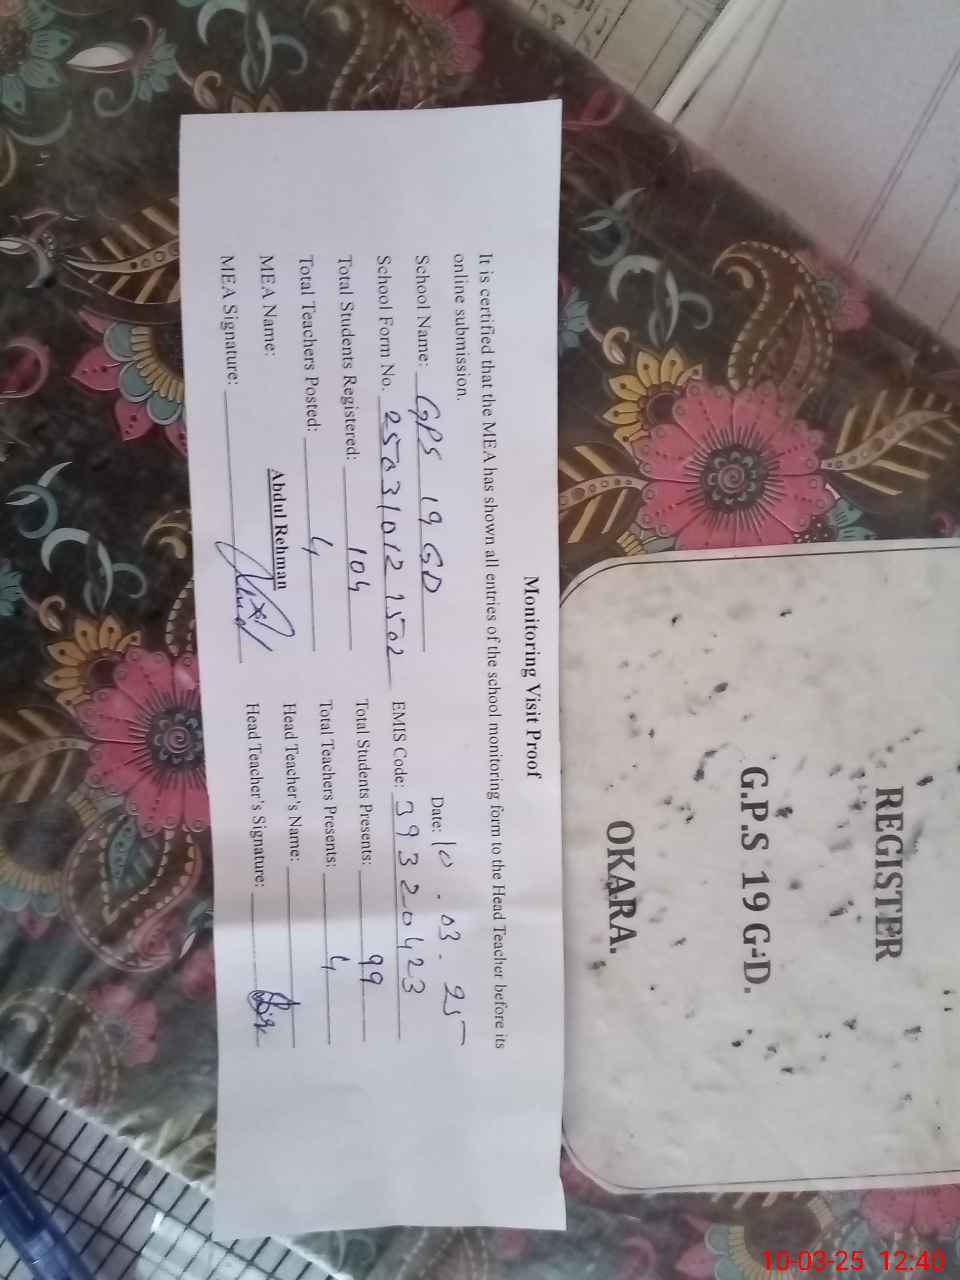 REGISTER
G.P.S 19 G-D.
OKARA.
Monitoring Visit Proof
It is certified that the MEA has shown all entries of the school monitoring form to the Head Teacher before its
online submission.
Date: 10.03.25
School Name: GPS 19 GD
School Form No. 250310121502 EMIS Code: 39320423
Total Students Registered: 104 Total Students Presents: 99
Total Teachers Posted: 4 Total Teachers Presents: 4
MEA Name: Abdul Rehman Head Teacher's Name:
MEA Signature: Head Teacher's Signature:
10-03-25 12:40